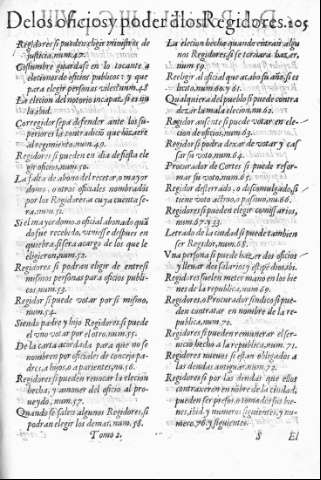 De los oficios y poder dlos Regidores. 205
Regidores si pueden elegir ministro de
justicia, num. 47.
Costumbre guardase en lo tocante a
eleciones de oficios publicos: y que
para elegir personas valet num. 48
La elecion del notorio incapaz, si es ju
stcia num.
Corregidor sepa defender ante los su-
periores la contradicion que hiziere
al regimiento, num. 49.
Regidores si pueden en dia de fiesta ele
gir oficios, num. 50.
La falta de abono del recetor, o mayor
domo, o otros oficiales nombrados
por los Regidores, a cuya cuenta se-
ra, num. 51.
Si el mayordomo, o oficial abonado quã
do fue recebido, viniesse despues en
quiebra, si sera acargo de los que le
eligieron, num. 52.
Regidores si podran elegir de entre si
mismos personas para oficios publi-
cos, num. 53.
Regidor si puede votar por si mismo,
num. 54.
Siendo padre y hijo Regidores, si puede
el uno votar por el otro, num. 55.
De la carta acordada para que no se
nombren por oficiales de concejo pa-
dres, a hijos, o a parientes, nu. 56.
Regidores si pueden revocar la elecion
hecha, y aumover del oficio al pro-
veydo, num. 57.
Quando se salen algunos Regidores, si
podran elegir los demas, num. 58.
La elecion hecha quando entran algu
nos Regidores, si se tornara hazer,
num. 59.
Reelegir al oficial que acabo su año, si es
licito, num. 60. y 61.
Qualquiera del pueblo si puede contra
dezir la mala eleccion, nu. 62.
Regidor ausente si puede votar en ele-
cion de oficios, num. 63.
Regidor si podra dexar de votar y caf
sar su voto, num. 64.
Procurador de Cortes si puede refor-
mar su voto, num. 65.
Regidor desterrado, o descomulgado, si
tiene voto activo, o passivo, nu. 66.
Regidores si pueden elegir comissarios,
num. 67. y 33.
Letrado de la ciudad si puede tambien
ser Regidor, num. 68.
Una persona si puede hazer dos oficios
y llevar dos salarios, y este dice, ibi.
Regidores suelen meter mano en los bie
nes de la republica, num. 69.
Regidores, o Procurador sindico si pue-
den contratar en nombre de la re-
publica, num. 70.
Regidores si pueden remunerar el ser-
vicio hecho a la republica, num. 71.
Regidores nuevos si estan obligados a
las deudas antiguas, num. 72.
Regidores si por las deudas que ellos
contraxeren en nõbre de la ciudad,
pueden ser presos, o tomados sus bie-
nes, ibid. y numeros siguientes, y nu-
mero. 76. y siguientes.
Tomo 2. S El